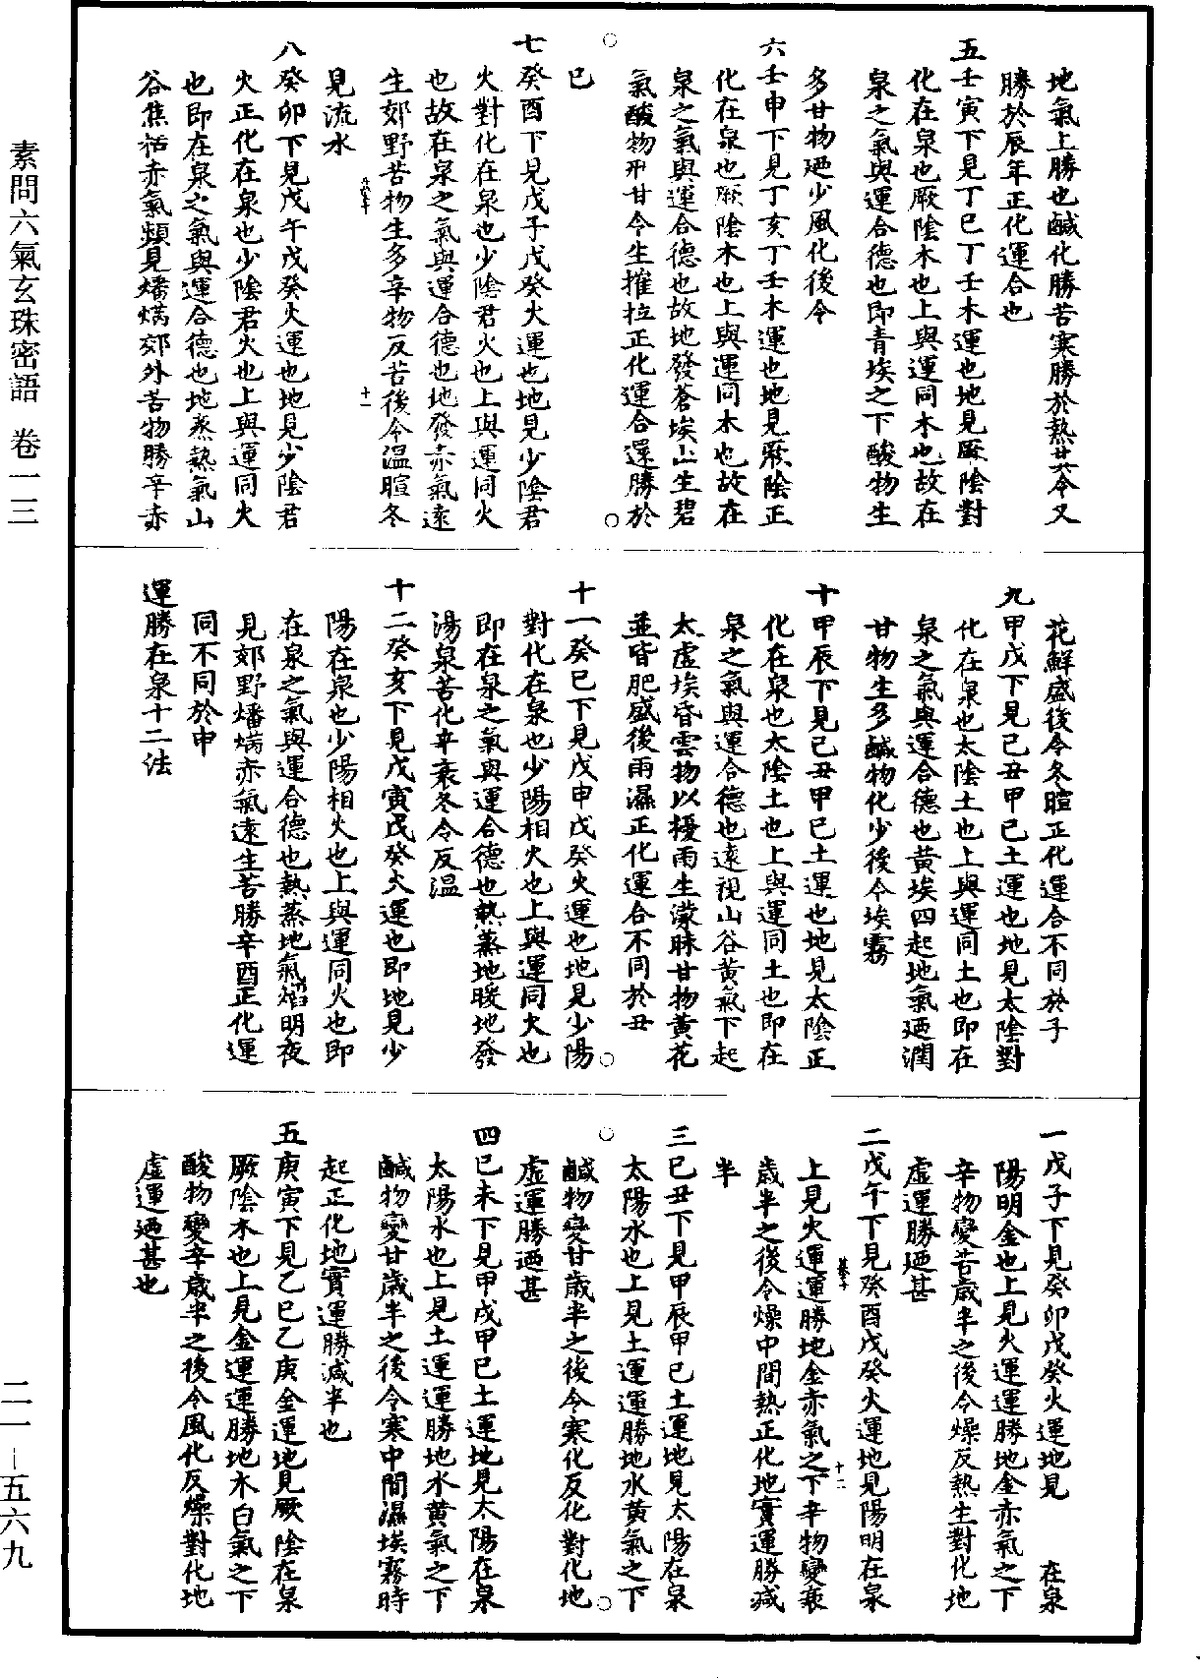 素問六氣玄珠密語　卷一三
地氣上勝也鹹化勝苦寒勝於熱其令又
勝於辰年正化運合也
五壬寅下見丁巳丁壬木運也地見厥陰對
化在泉也厥陰木也上與運同木也故在
泉之氣與運合德也即青埃之下酸物生
多甘物廼少風化後令
六壬申下見丁亥丁壬木運也地見厥陰正
化在泉也厥陰木也上與運同木也故在
泉之氣與運合德也故地發蒼埃山生碧
氣酸物用甘令生摧拉正化運合還勝於
巳
七癸酉下見戊子戊癸火運也地見少陰君
火對化在泉也少陰君火也上與運同火
也故在泉之氣與運合德也地發赤氣遠
生郊野苦物生多辛物反苦後令温暄冬
見流水
十一
八癸卯下見戊午戊癸火運也地見少陰君
火正化在泉也少陰君火也上與運同火
也即在泉之氣與運合德也地蒸熱氣山
谷焦枯赤氣頻見燔焫郊外苦物勝辛赤
花鮮盛後令冬暄正化運合不同於子
九甲戌下見己丑甲己土運也地見太陰對
化在泉也太陰土也上與運同土也即在
泉之氣與運合德也黃埃四起地氣廼潤
甘物生多鹹物化少後令埃霧
十甲辰下見己丑甲己土運也地見太陰正
化在泉也太陰土也上與運同土也即在
泉之氣與運合德也遠視山谷黃氣下起
太虛埃昏雲物以擾雨生濛昧甘物黃花
並皆肥盛後雨濕正化運合不同於丑
十一癸巳下見戊申戊癸火運也地見少陽
對化在泉也少陽相火也上與運同火也
即在泉之氣與運合德也熱蒸地暖地發
湯泉苦化辛衰冬令反温
十二癸亥下見戊寅戊癸火運也即地見少
陽在泉也少陽相火也上與運同火也即
在泉之氣與運合德也熱蒸地氣熖明夜
見郊野燔焫赤氣遠生苦勝辛酉正化運
同不同於申
運勝在泉十二法
一戊子下見癸卯戊癸火運地見　在泉
陽明金也上見火運運勝地金赤氣之下
辛物變苦歲半之後令燥反熱生對化地
虛運勝廼甚
二戊午下見癸酉戊癸火運地見陽明在泉
上見火運運勝地金赤氣之下辛物變衰
十二
歲半之後令燥中間熱正化地實運勝減
半
三己丑下見甲辰甲己土運地見太陽在泉
太陽水也上見土運運勝地水黃氣之下
鹹物變甘歲半之後令寒化反化對化地
虛運勝廼甚
四己未下見甲戌甲己土運地見太陽在泉
太陽水也上見土運運勝地水黃氣之下
鹹物變甘歲半之後令寒中間濕埃霧時
起正化地實運勝減半也
五庚寅下見乙巳乙庚金運地見厥陰在泉
厥陰木也上見金運運勝地木白氣之下
酸物變辛歲半之後令風化反燥對化地
虛運廼甚也
二一—五六九